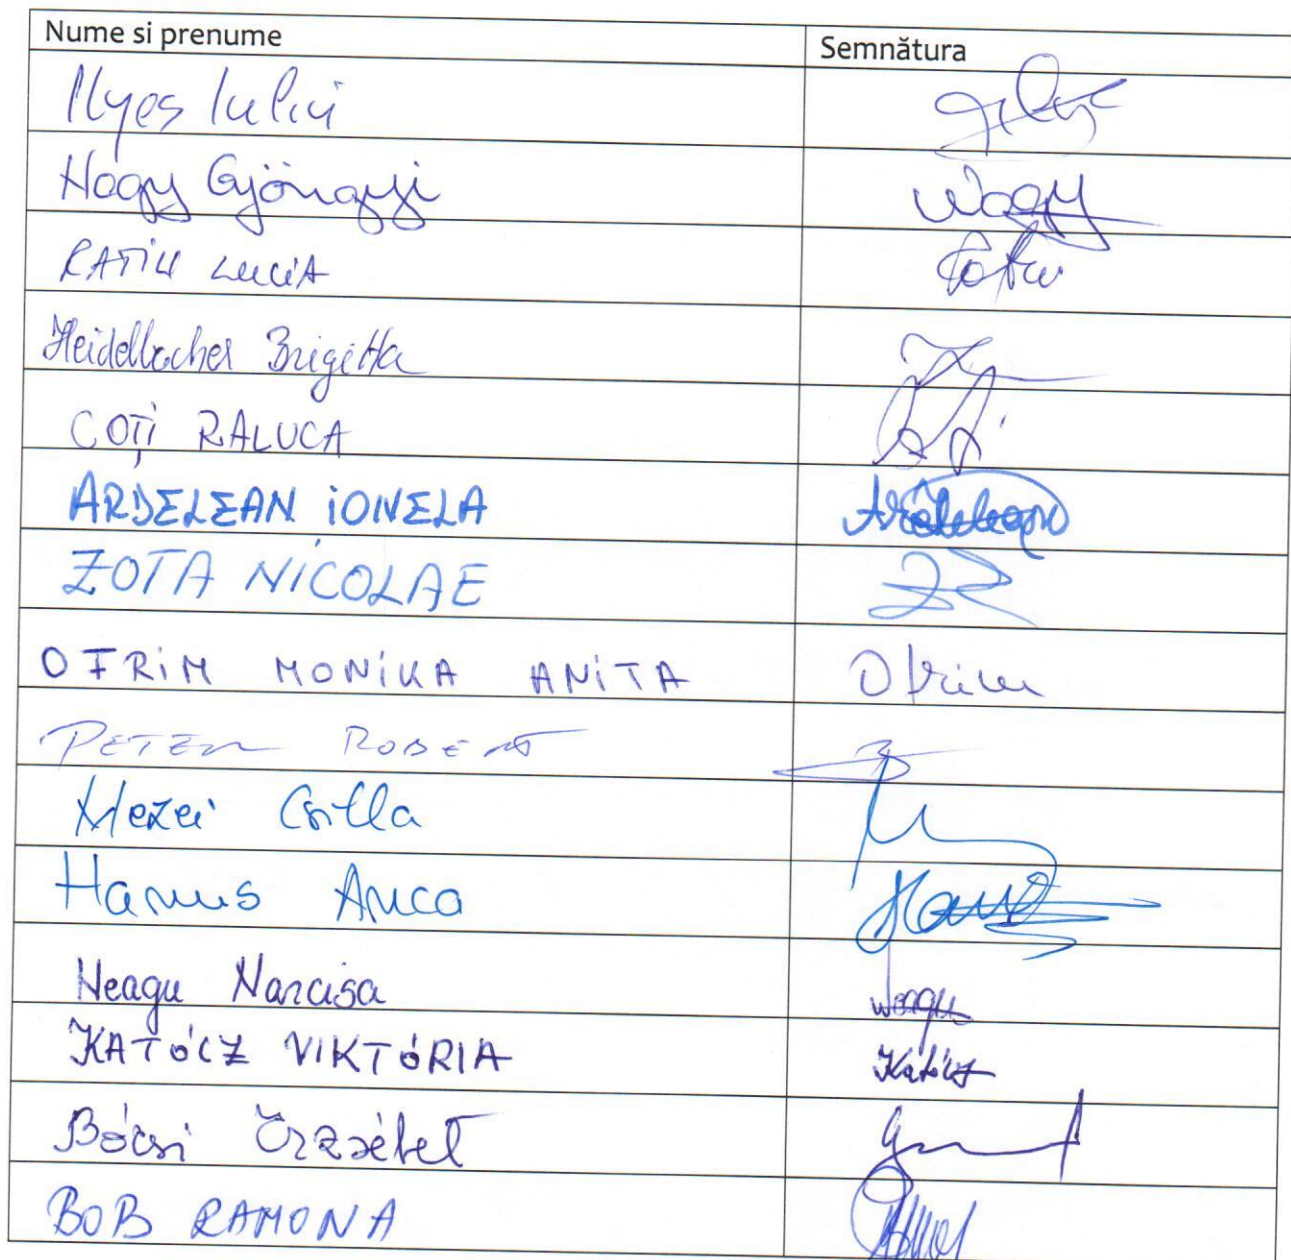 Nume si prenume Semnătura
Ilyes Iuliu
Nagy Gyöngyi Nagy
RATIU LUCIA Ratiu
Heidelbacher Brigitta
COȚI RALUCA
ARDELEAN IONELA Ardelean
ZOTA NICOLAE
OFRIM MONIKA ANITA Ofrim
PETER ROBERT
Mezei Csilla
Hanus Anca
Neagu Narcisa Neagu
KATÓCZ VIKTÓRIA Katócz
Bócsi Erzsébet
BOB RAMONA